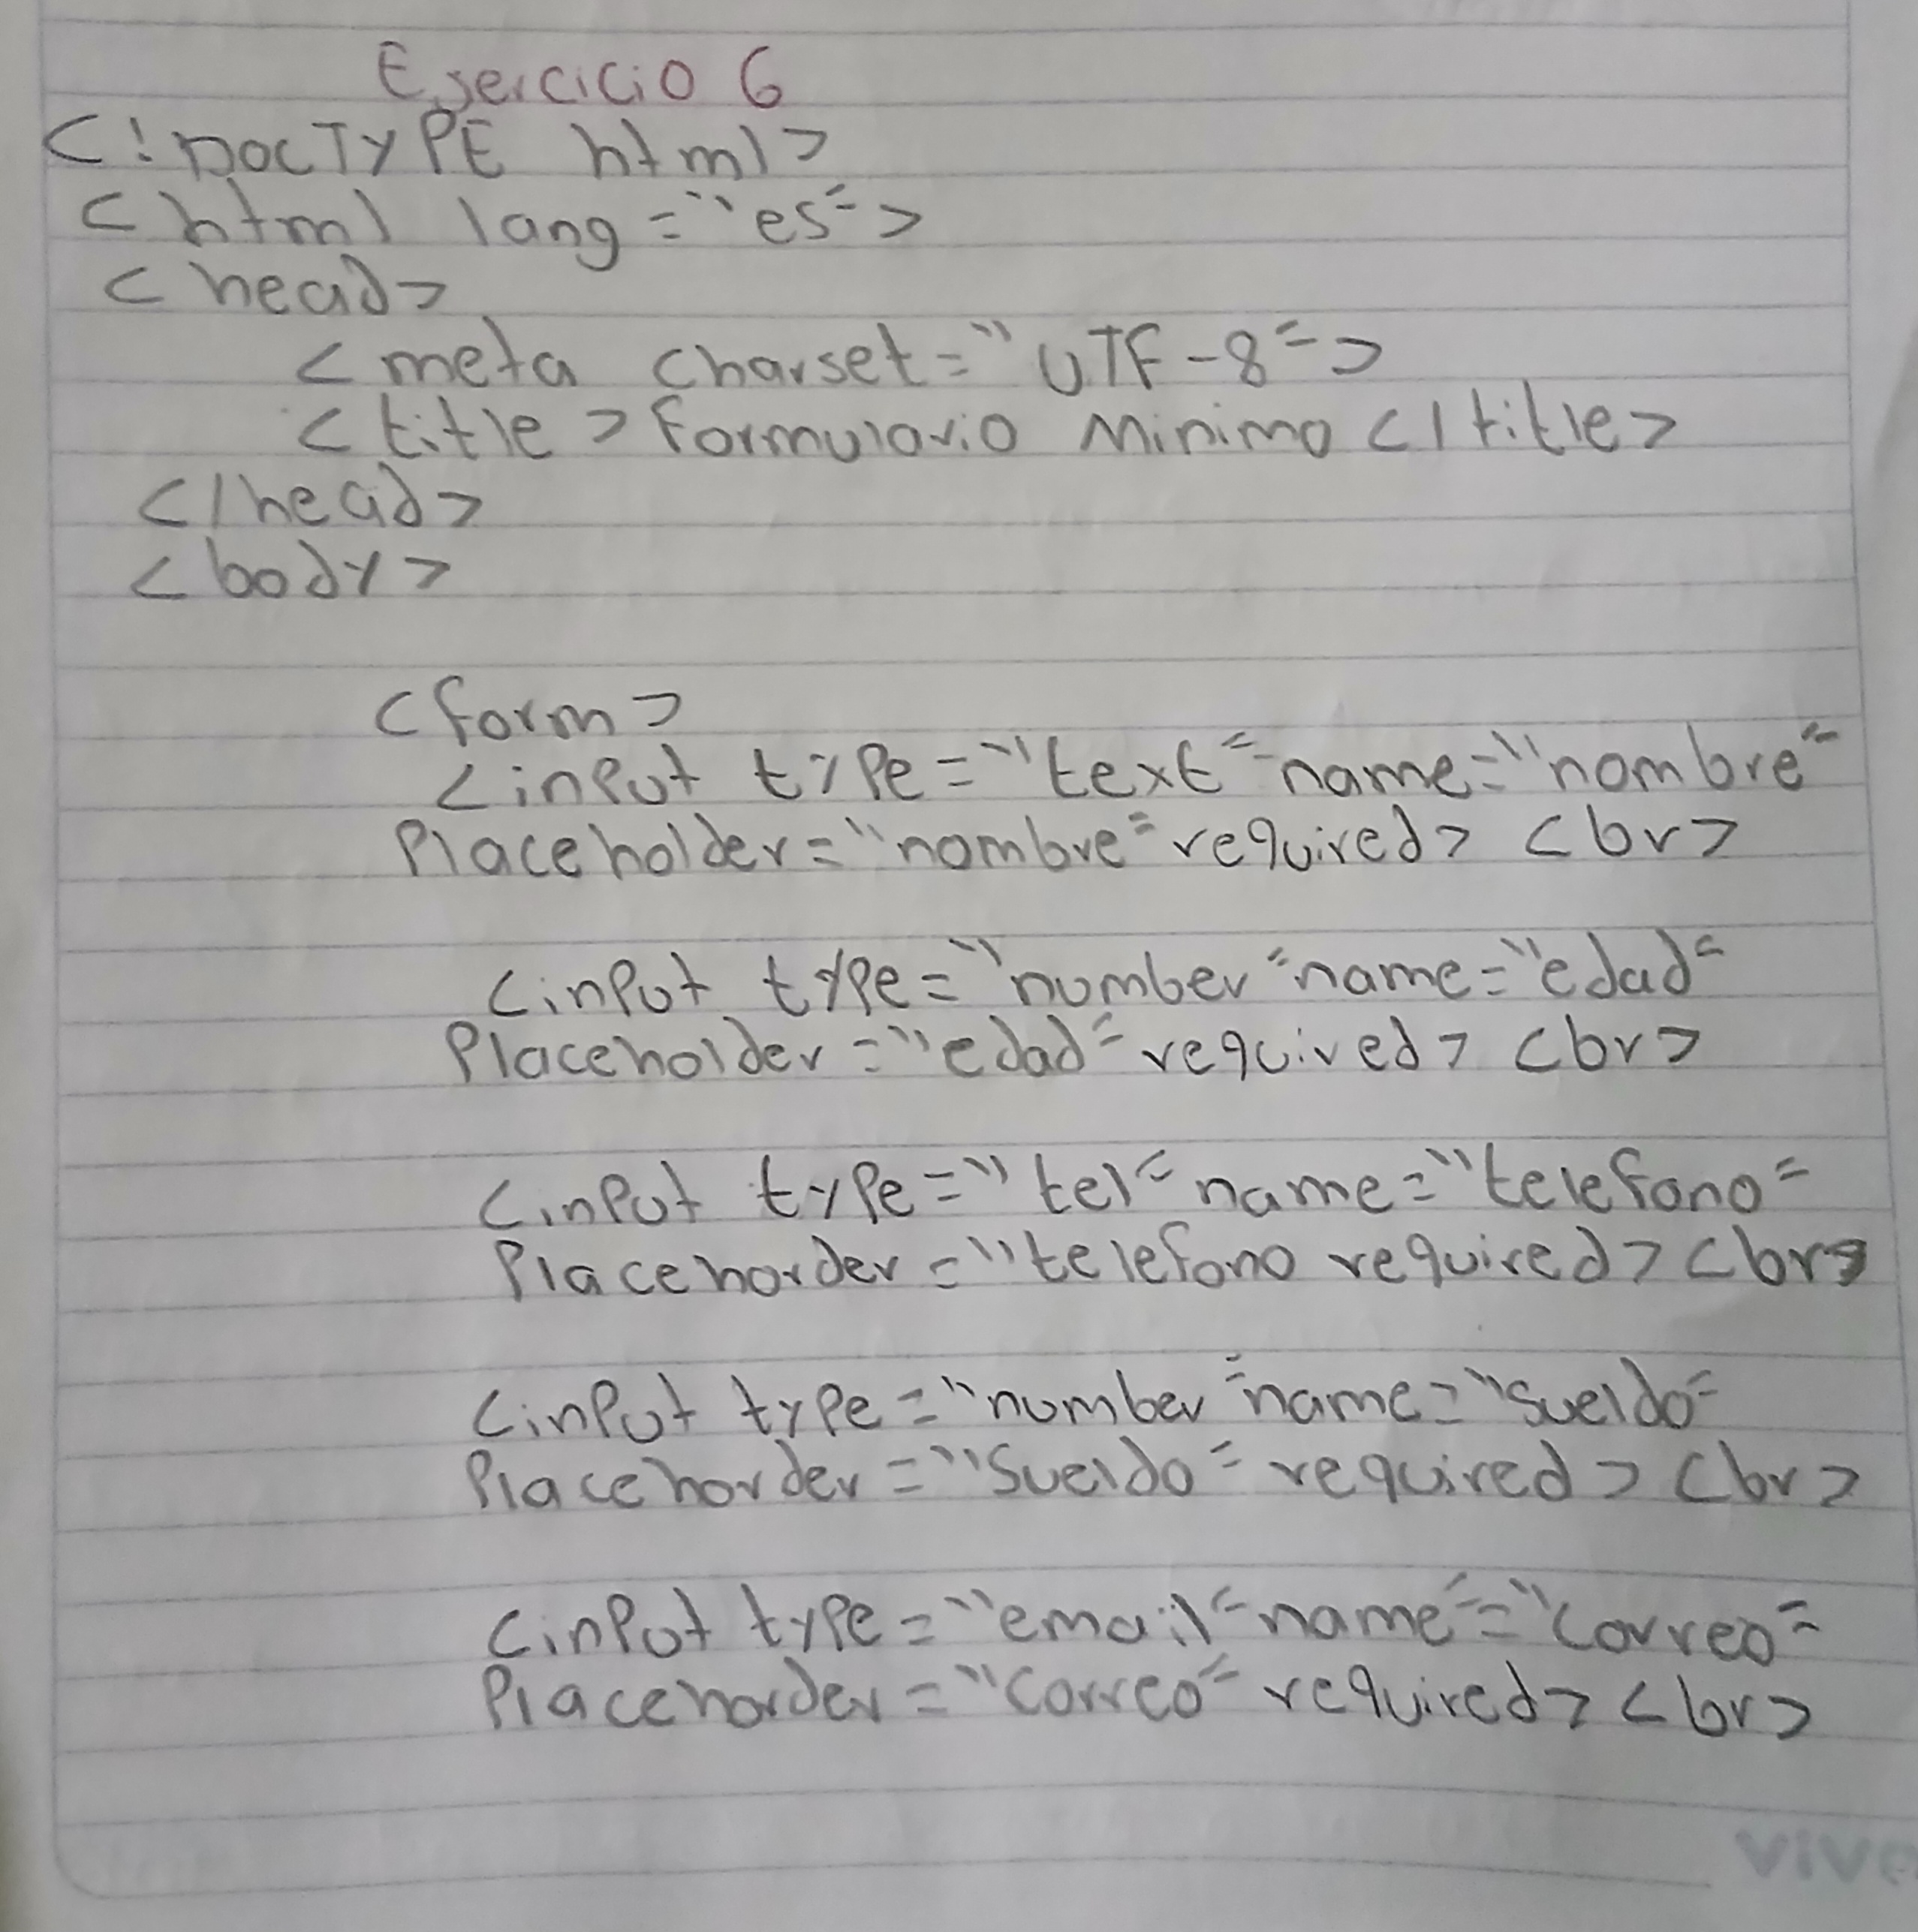 Ejercicio 6
<!DOCTYPE html>
<html lang="es">
<head>
<meta charset="UTF-8">
<title>Formulario Minimo</title>
</head>
<body>
<form>
<input type="text" name="nombre"
Placeholder="nombre" required> <br>
<input type="number" name="edad"
Placeholder="edad" required> <br>
<input type="tel" name="telefono"
Placehorder="telefono required> <br>
<input type="number" name="sueldo"
Placehorder="Sueldo" required> <br>
<input type="email" name"="correo"
Placehorder="correo" required> <br>
vive